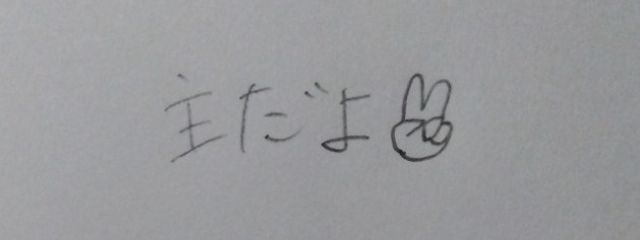 主だよ✌